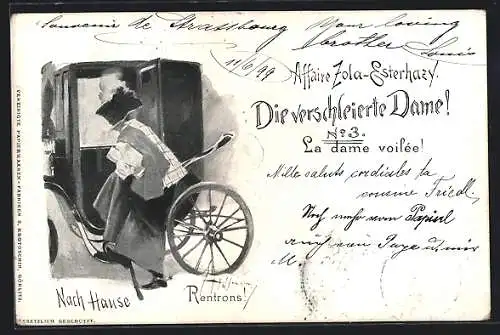 Souvenir de Strassbourg Your loving
brother Louis
11/6/99
Affaire Zola-Esterhazy.
Die verschleierte Dame!
No 3.
La dame voilée!
Mille saluts cordiales ta
cousine Friedl.
Noch mehr vom Papierl
auf
M.
Nach Hause
Rentrons!
VEREINIGTE PAPIERWAAREN-FABRIKEN S. KROTOSCHIN, GÖRLITZ.
GESETZLICH GESCHÜTZT.